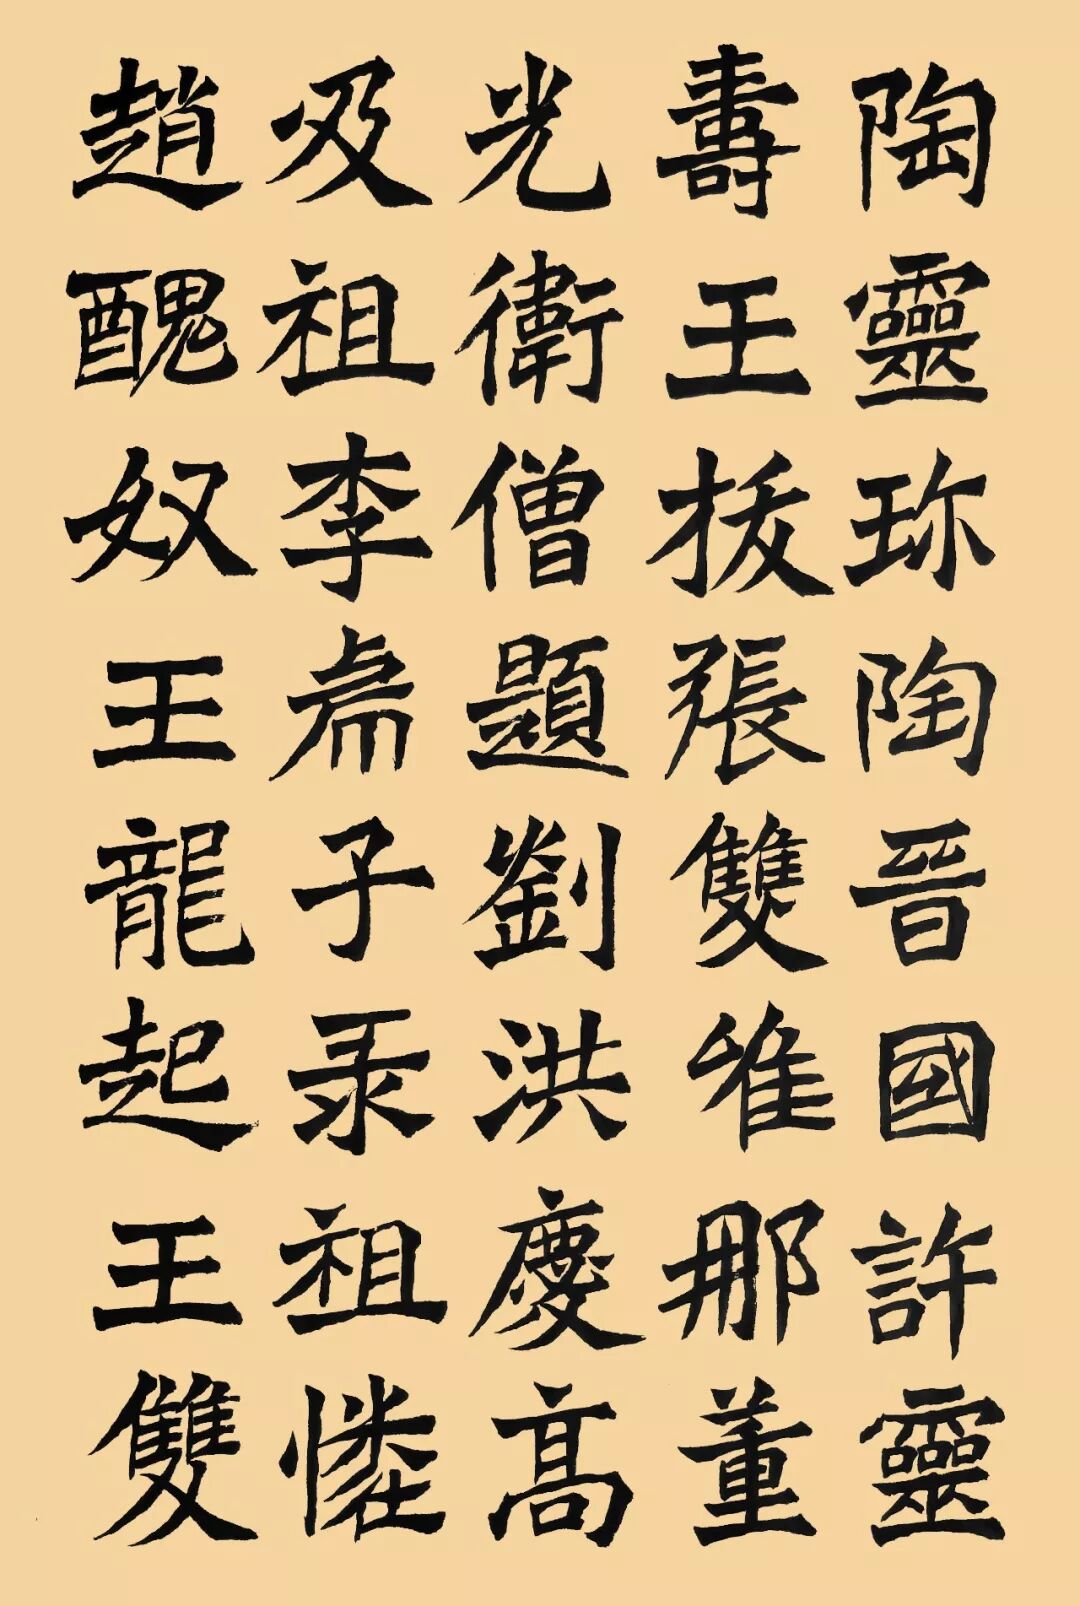 陶靈珎陶晉國許靈
壽王拔張雙隹那董
光衛僧題劉洪慶高
及祖李子祖
趙醜奴王龍起王雙